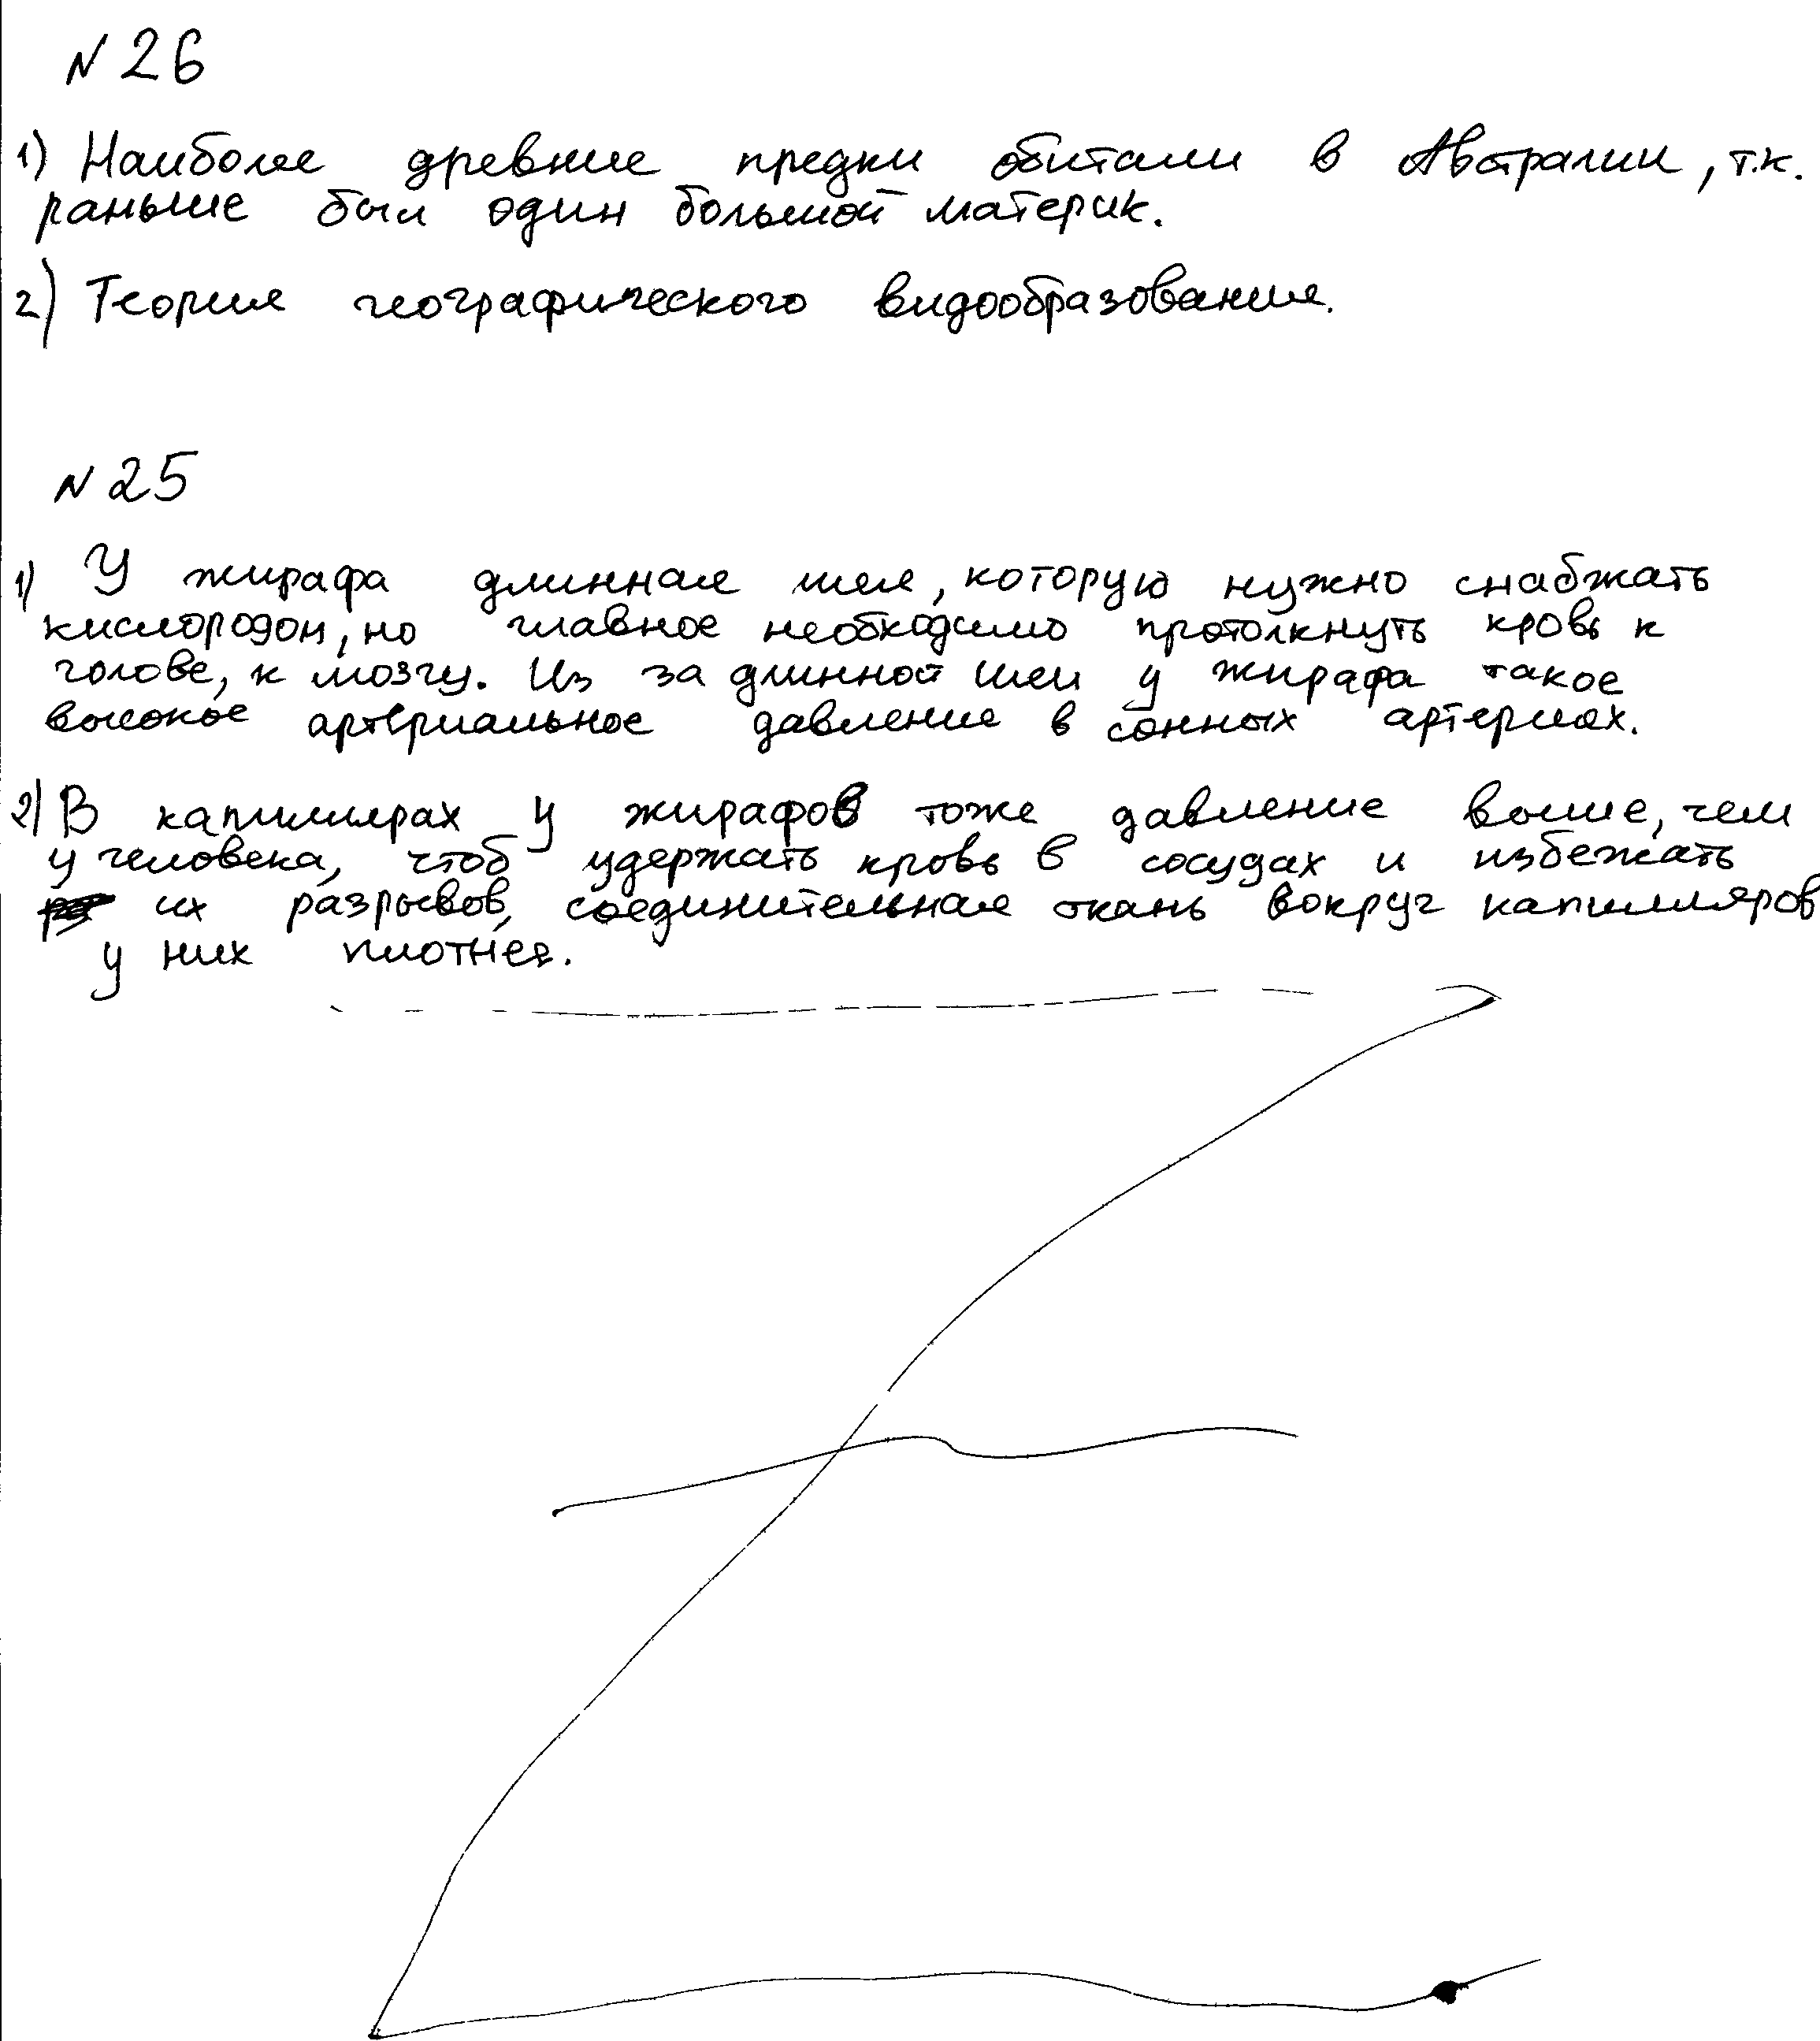 N 26
1) Наиболее древние предки обитали в Австралии, т.к.
раньше был один большой материк.
2) Теория географического видообразования.
N 25
1) У жирафа длинная шея, которую нужно снабжать
кислородом, но главное необходимо протолкнуть кровь к
голове, к мозгу. Из за длинной шеи у жирафа такое
высокое артериальное давление в сонных артериях.
2) В капиллярах у жирафов тоже давление выше, чем
у человека, чтоб удержать кровь в сосудах и избежать
их разрывов, соединительная ткань вокруг капилляров
у них плотнее.